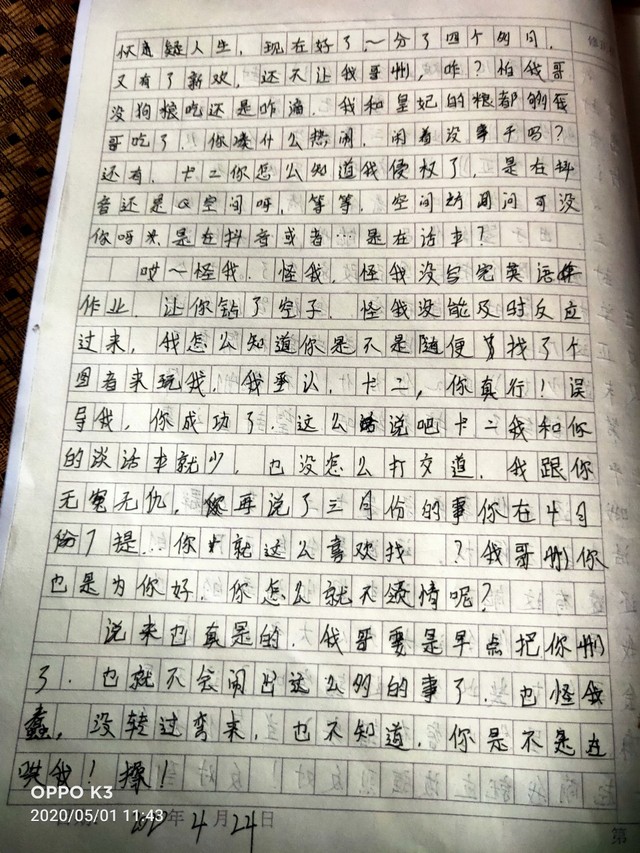 怀疑人生，现在好了～分了四个多月，
又有了新欢，还不让我哥删，咋？怕我哥
没狗粮吃还是咋滴．我和皇妃的粮都够我
哥吃了．你凑什么热闹．闲着没事干吗？
还有．卡二你怎么知道我侵权了，是在抖
音还是Q空间呀，等等．空间访问可没
你呀 是在抖音或者…是在话本？
哎～怪我．怪我．怪我没写完英语
作业．让你钻了空子．怪我没能及时反应
过来，我怎么知道你是不是随便找了个
图者来玩我．我承认．卡二，你真行！误
导我，你成功了．这么说吧卡二我和你
的谈话本就少．也没怎么打交道．我跟你
无冤无仇．再说了三月份的事你在4月
份了提…你就这么喜欢找 ？我哥删你
也是为你好．你怎么就不领情呢？
说来也真是的．我哥要是早点把你删
了．也就不会闹出这么多的事了．也怪我
蠢，没转过弯来，也不知道．你是不是在
哄我！操！
年4月24日
OPPO K3
2020/05/01 11:43
第